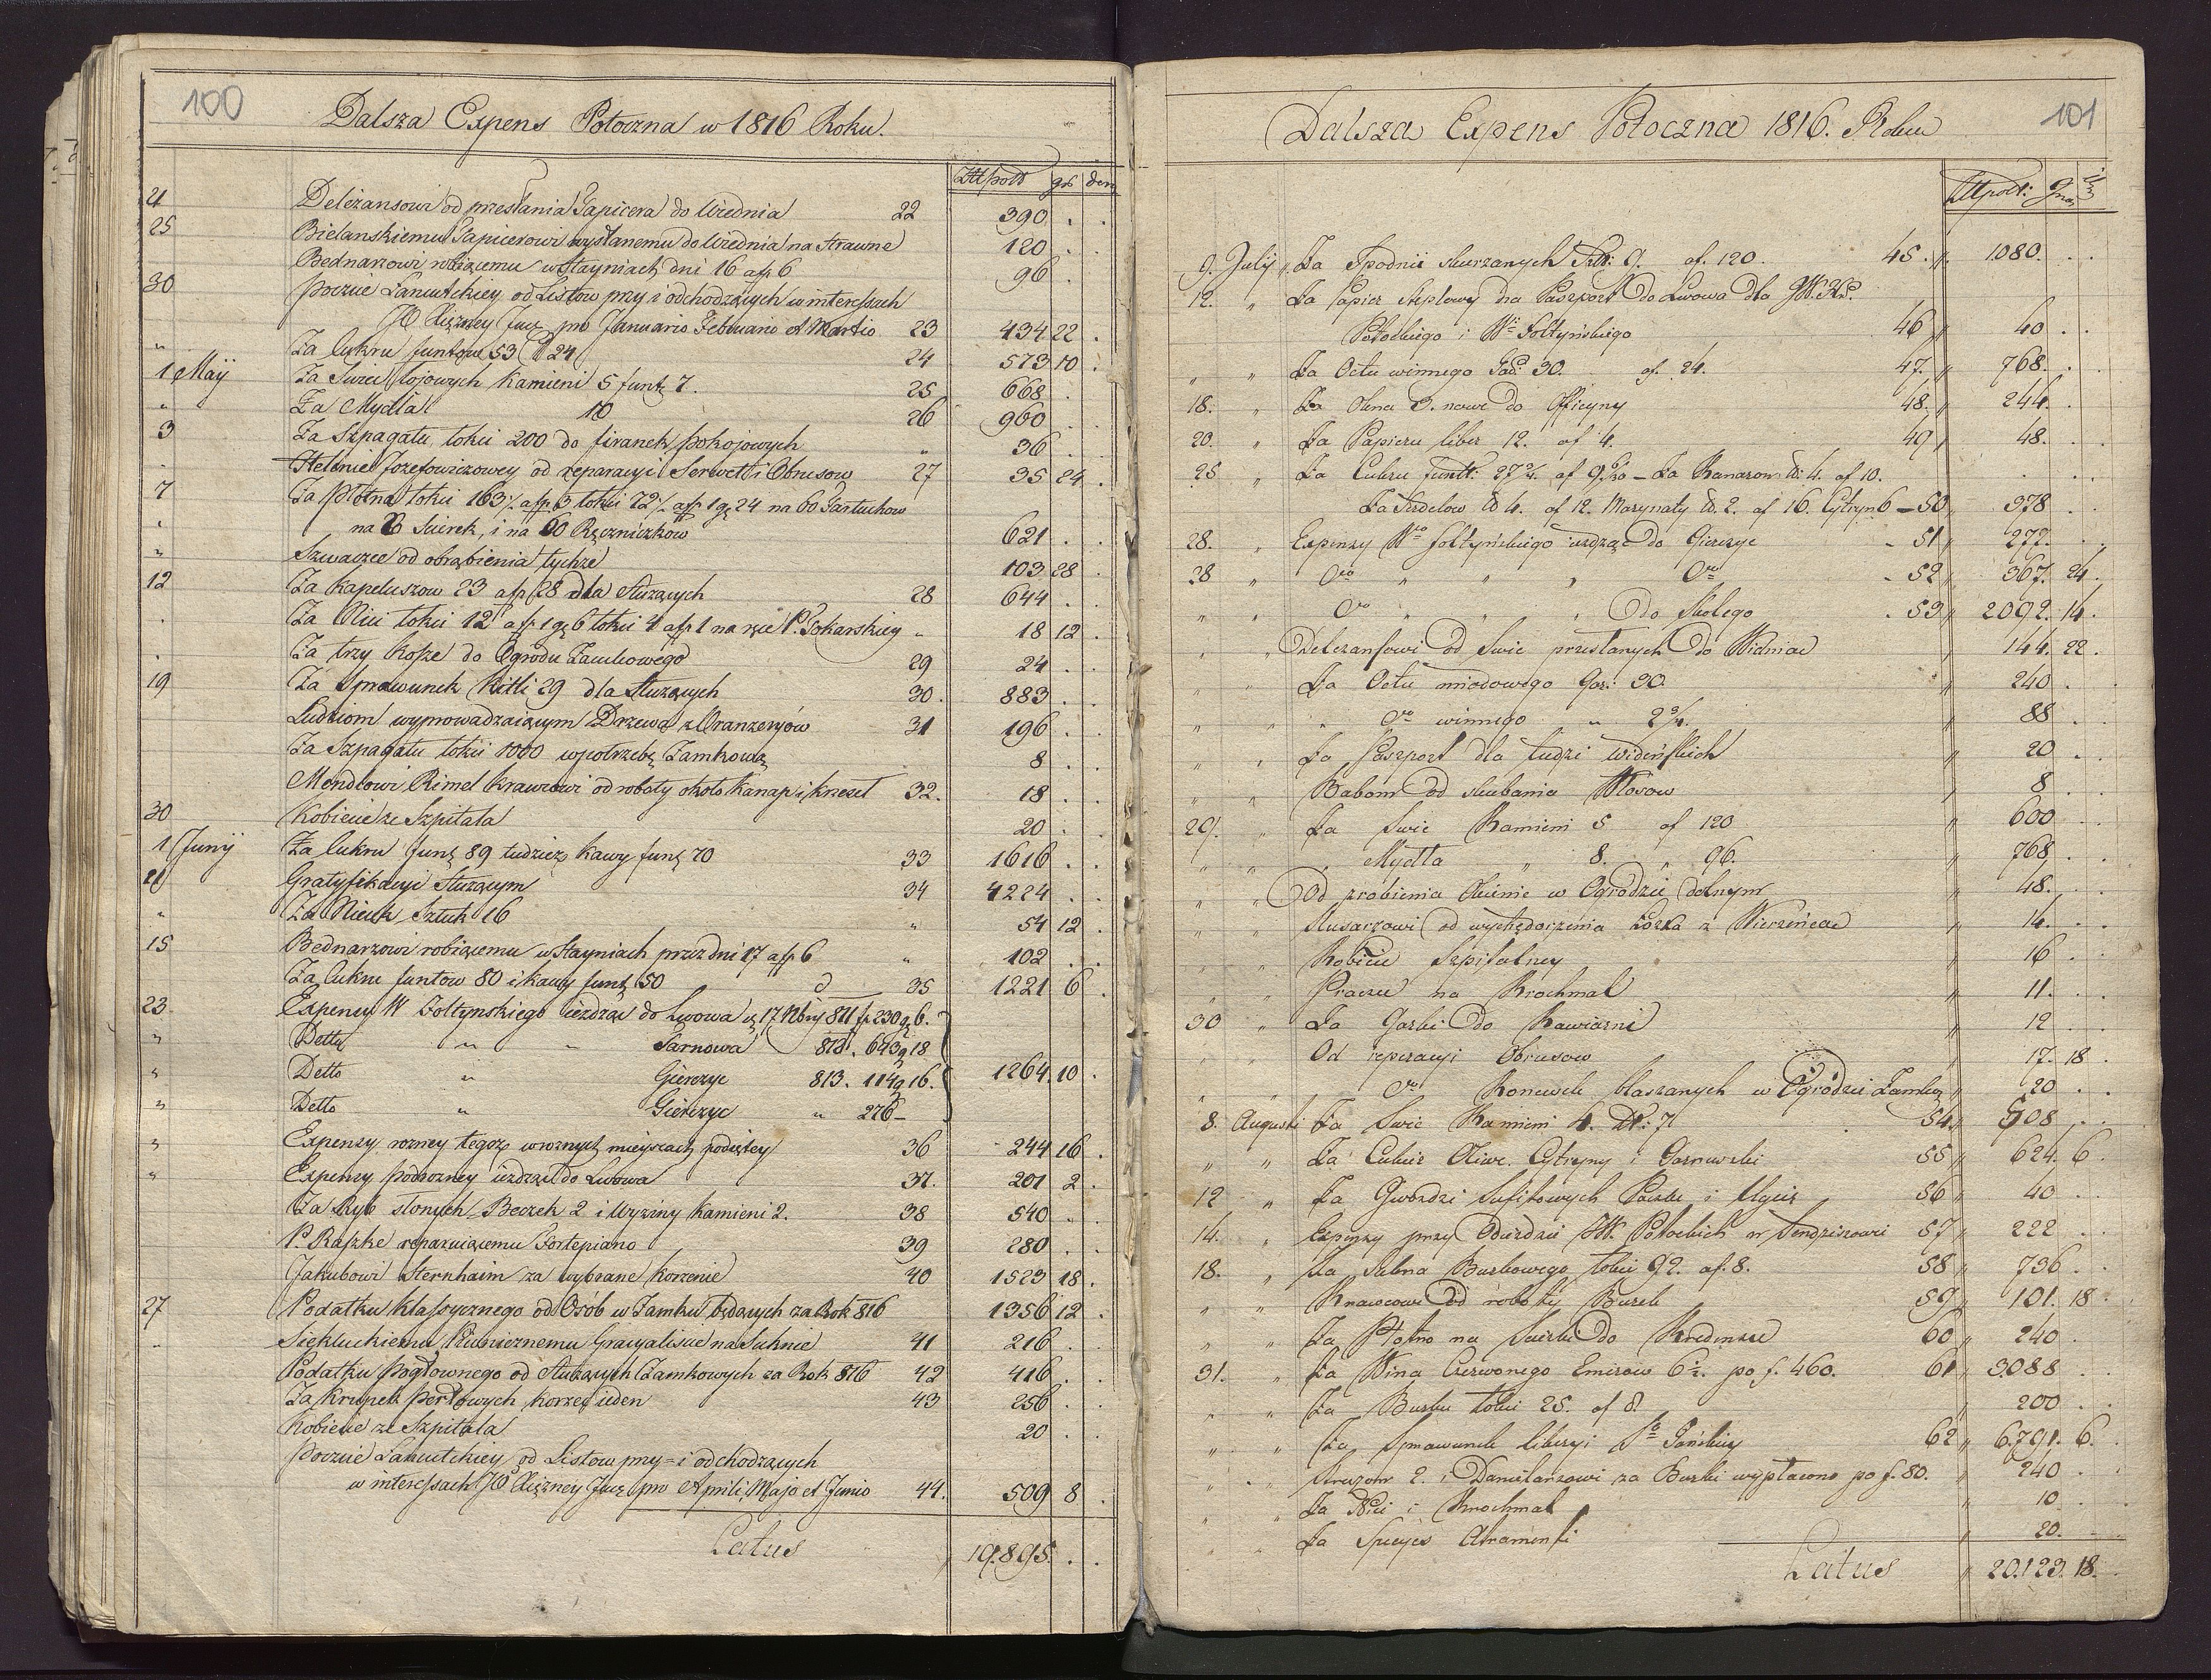 100
Dalsza Expens Potoczna w 1816 Roku.
Złłpols gro den
21 Deliżansowi od przesłania Tapicera do Wiednia 22 390 . .
25 Bielanskiemu Tapicerowi wysłanemu do Wiednia na Strawne 120 . .
Bednarzowi robiącemu w Stayniach dni 16 af 6 96 .
30 Poczcie Łancutckiey od Listow przy i odchodzących w interessach
JO Xiężney Jmć pro Januario Februario et Martio 23 434 22 .
" Za Cukru funtow 53 24 24 573 10 .
1 Maij Za Swiec łojowych Kamieni 5 funt 7. 25 668 .
" Za Mydła 10 26 960 . .
3 Za Szpagatu łokci 200 do firanek pokojowych " 36 . .
Helenie Jozefowiczowey od reparacyi Serwett i Obrusow 27 35 24 .
7 Za Płótna łokci 163 af 3 łokci 72 af 1 g 24 na 60 Fartuchow
na 26 Scirek, i na 60 Ręczniczkow 621 . .
" Szwaczce od obrąbienia tychże 103 28 .
12 Za Kapeluszow 23 af 28 dla Służących 28 644 . .
Za Nici łokci 12 af 1 g 6 łokci 4 af 1 na rzie P. Tokarskiey " 18 12 .
Za trzy Kosze do Ogrodu Zamkowego 29 24 . .
19 Za Sprawunek Kitli 29 dla Służących 30. 883 . .
Ludziom wyprowadzaiącym Drzewa z Oranżeryów 31 196 . .
Za Szpagatu łokci 1000 w potrzebę Zamkową 8 . .
Mendlowi Rimel Krawcowi od roboty około Kanap i krzeseł 32. 18 . .
30 Kobiecie ze Szpitala 20 . .
1 Junij Za Cukru funt 89 tudzież Kawy funt 70 33 1616 . .
21 Gratyfikacyi Służącym 34 4224 . .
" Za Niecek Sztuk 16 " 54 12 .
15 Bednarzowi robiącemu w Stayniach przez dni 17 af 6 " 102 . .
Za Cukru funtow 80 i kawy funt 50 35 1221 6 .
23 Expensy W Fołtynskiego ieżdząc do Lwowa 17 Nbris 811 f 230 g 6.
" Detto " " Tarnowa 812. 643 g 18
" Detto " Gierczyc 813. 114 g 16. 1264 10 .
" Detto " Gierczyc " 276 -
" Expensy rozney tegoż w roznych mieyscach podiętey 36 244 16 .
" Expensy podrozney ieżdząc do Lwowa 37. 201 2 .
Za Ryb słonych Beczek 2 i Wyziny Kamieni 2. 38 540 . .
P. Raszke reparuiącemu Fortepiano 39 280 . .
Jakubowi Sternhaim za wybrane Korzenie 40 1523 18 .
27 Podatku Klassycznego od Osób w Zamku będących za Rok 816 1356 12 .
Siekluckiemu Piwnicznemu Gracyalisue na Suknie 41 216 . .
Podatku Pogłownego od Służących Zamkowych za Rok 816 42 416 . .
Za Krupek Perłowych Korzec ieden 43 256 . .
Kobiecie ze Szpitala 20 . .
Poczcie Łancutckiey od Listow przy= i odchodzących
w interessach JO Xiężney Jmć pro Aprili, Majo et Junio 44. 509 8 .
Latus 19.895. . .
101
Dalsza Expens Potoczna 1816. Roku
Złłpols: Gro
9. July " Za Spodnii skurzanych Szt: 9. af. 120. 45. " 1080. . .
12. " Za Papier steplowy na Paszport do Lwowa dla JW.
Potockiego i W Fołtyńskiego 46 " 40 . .
" " Za Octu winnego Gar: 30. af. 24. 47. " 768. . .
18. " Za Okna 3. nowe do Officyny 48. " 244. .
20. " Za Papieru liber 12. af 4. 49 " 48. . .
25 " Za Cukru funtt: 27 3/4. af 9. - Za Kanarow 4. af 10.
Za Serdelow 4. af 12. Marynaty 2. af 16. Cytryn 6 - 50 " 378 . .
28. " Expensy W Fołtyńskiego ieżdząc do Gierczyc - 51 " 272. . .
28 " Dto " " " Dto - 52 " 367. 24.
" " Dto " " " Do Skolego . 53 " 2092. 14.
" " Deleżansowi od Swic przesłanych do Widnia " 144. 22.
" " Za Octu miodowego Gar: 30 " 240 . .
" " " Dto winnego " 2 3/4. " 88 . .
" " Za Paszport dla ludzi Wideńskich " 20 . .
" " Babom od skubania Włosow " 8 . .
29. " Za Swic Kamieni 5 af 120 " 600 . .
" " " Mydła " 8. " 96. " 768 . .
" " Od zrobienia Okienic w Ogrodzie dolnym " 48. . .
" " Slusarzowi od wychędożenia Łozka z " 14. . .
" " Kobicie Szpitalney " 16 . .
" " Praczce na Krochmal " 11. . .
30 " Za Garki do Kawiarni " 12 . .
" " Od reperacyi Obrusow " 17. 18.
" " Dto Konewek blaszanych w Ogrodzie Zamkow " 20 . .
8. Augusti Za Swic Kamieni 4. 7 54 " 508 . .
" " Za Cukier Oliwe. Cytryny i Garnuszki 55 " 624. 6.
12 " Za Gwozdzi Sufitowych Paczke i 56 " 40 . .
14. " Expensy przy Odieździe JW. Potockich w Sendziszowie 57 " 222 . .
18. " Za Sukna Burkowego łokci 92. af. 8. 58 " 736 . .
" " Krawcowi Od roboty Burek 59 " 101. 18.
" " Za Płotno na Scirki do Kredensu 60 " 240 .
31. " Za Wina Czerwonego Emirow 6 1/2. po f. 460. 61 " 3088 . .
" " Za Burki łokci 25. af 8. " 200 . .
" " Za Sprawunek liberyi Pańskiey 62 " 6.791. 6.
" . Struzom 2. i Danielarzowi za Burki wypłacono po f. 80. " 240 . .
" " Za Nici i Krochmal " 10 . .
" " Za Speciés Atramentu " 20. . .
Latus " 20.123. 18.